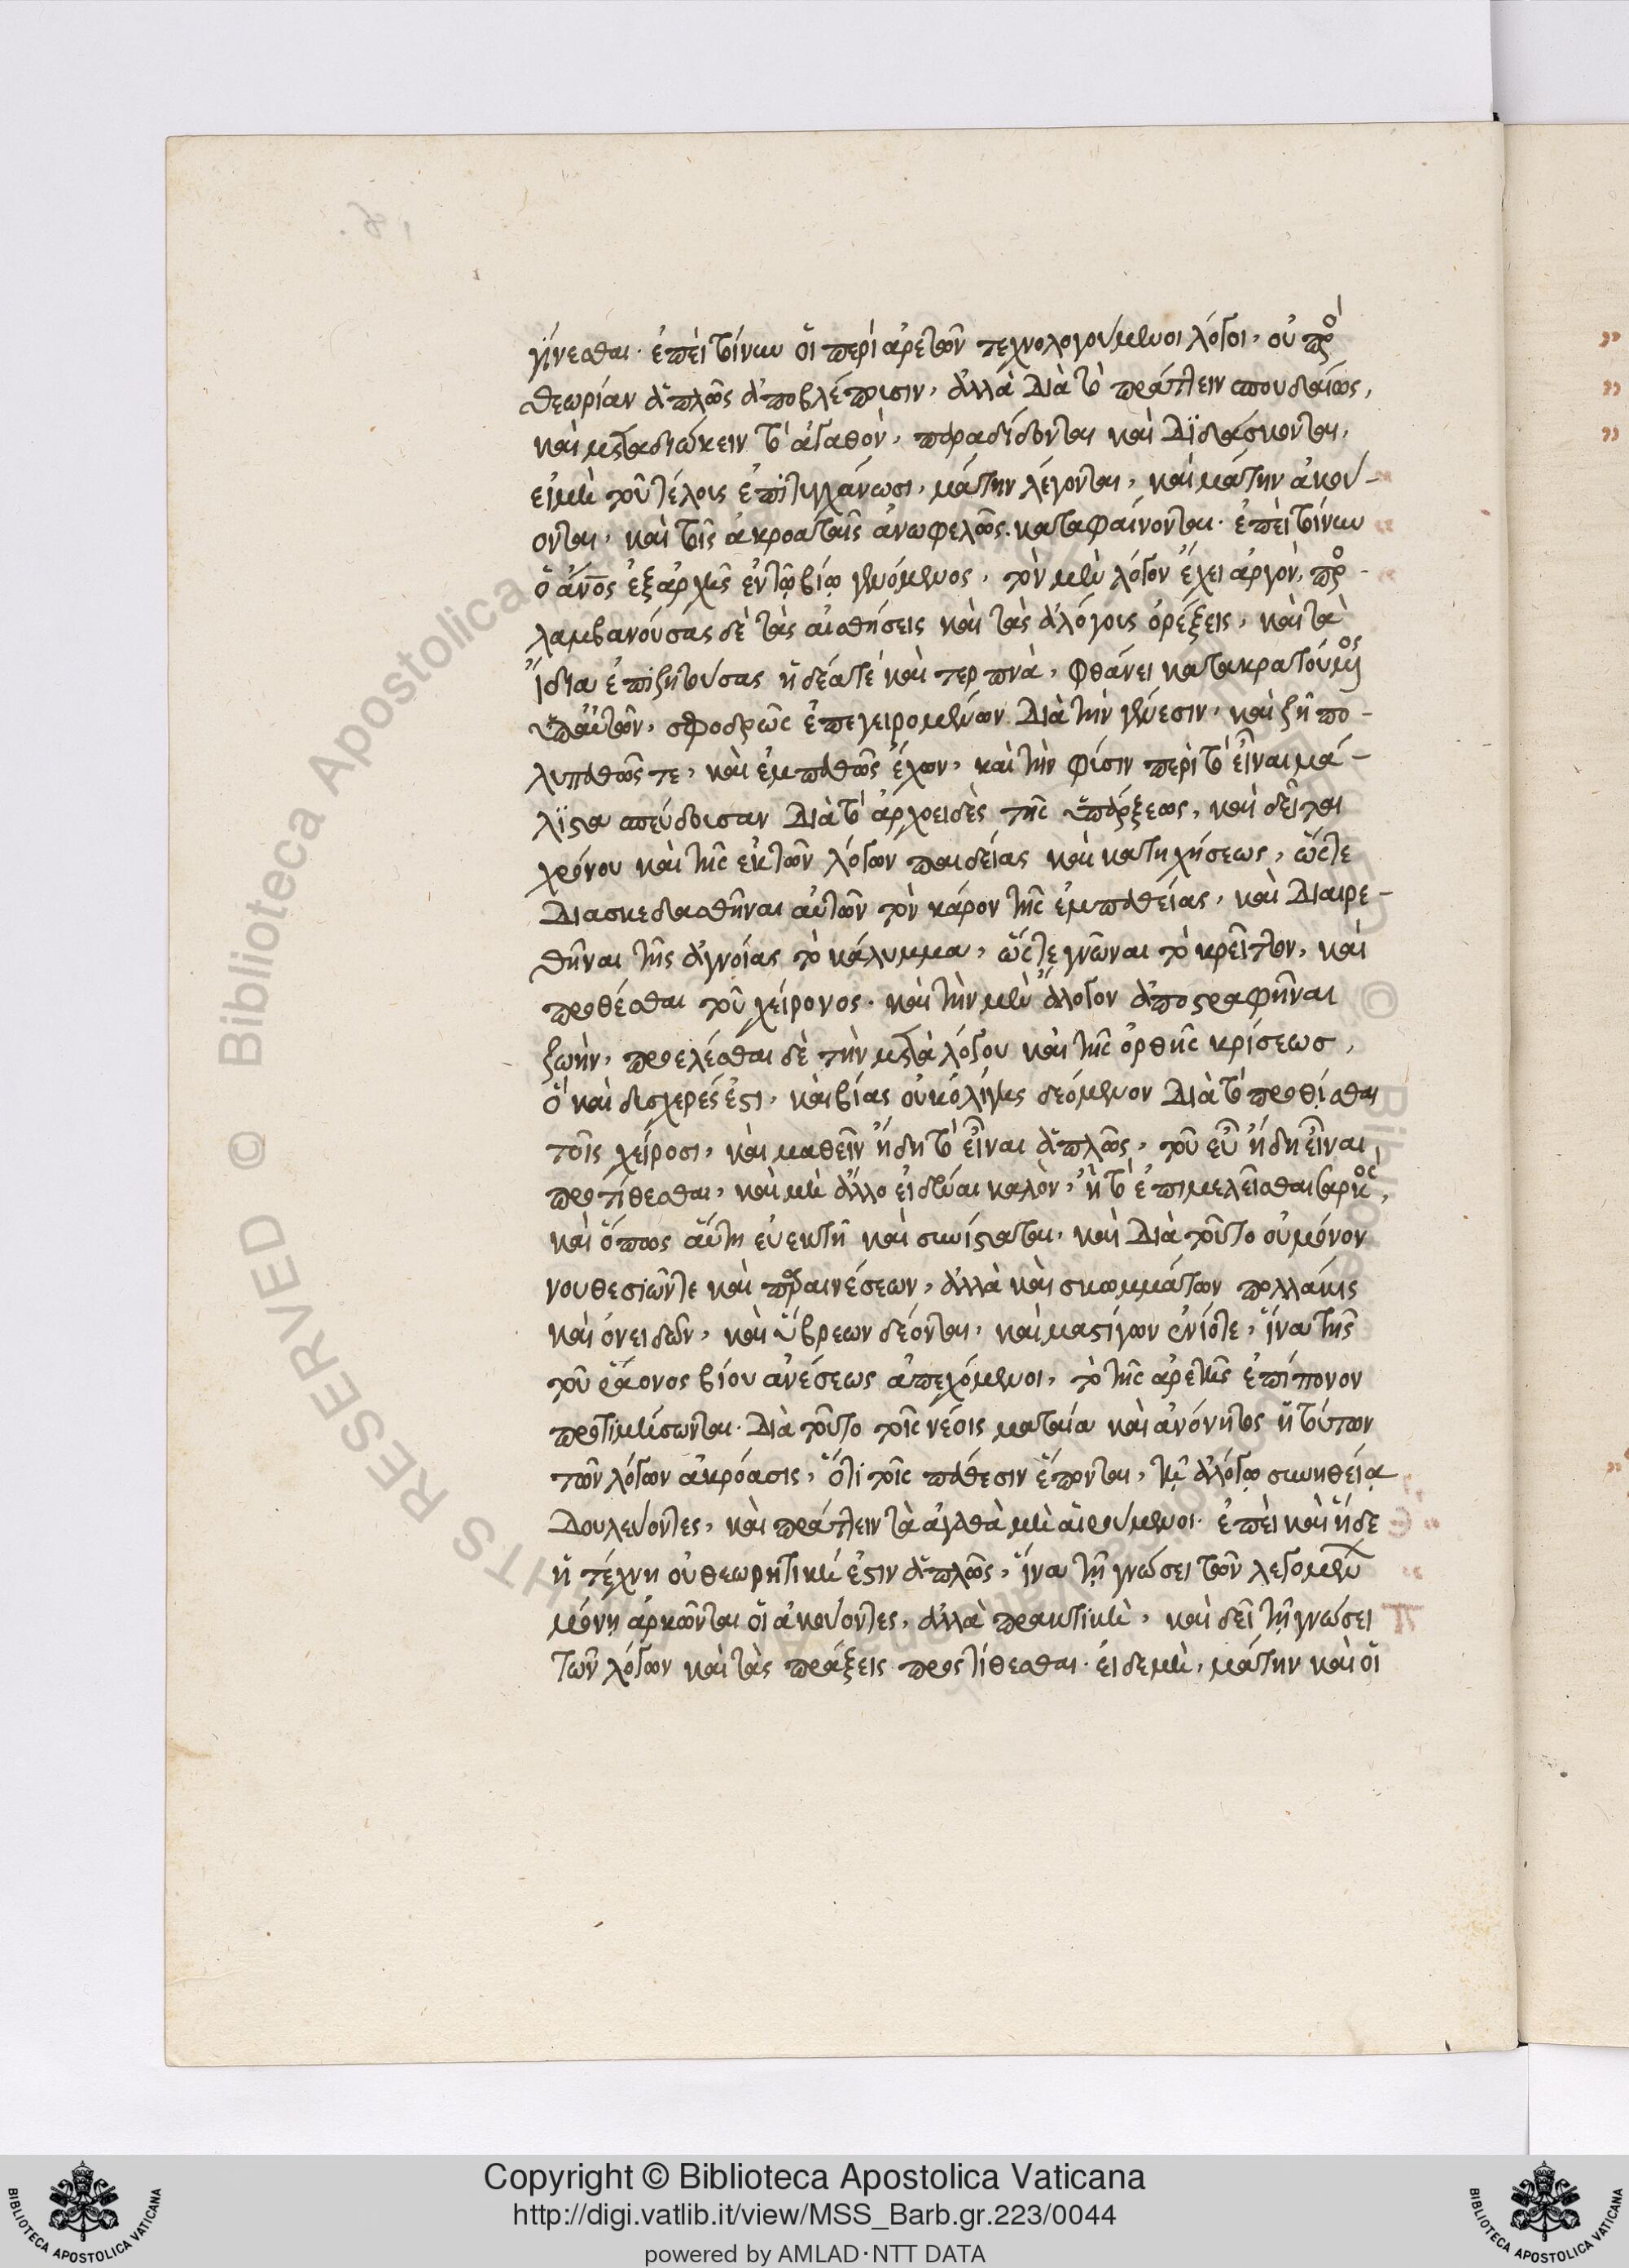 γίνεσθαι. ἐπεὶ τοίνυν οἱ περὶ ἀρετῶν τεχνολογούμενοι λόγοι, οὐ πρὸς
θεωρίαν ἁπλῶς ἀποβλέπουσιν, ἀλλὰ διὰ τὸ πράττειν σπουδαίως,
καὶ μεταδιώκειν τὸ ἀγαθὸν, παραδίδονται καὶ διδάσκονται,
εἰ μὴ τοῦ τέλους ἐπιτυγχάνωσι, μάτην λέγονται, καὶ μάτην ἀκού-
ονται, καὶ τοῖς ἀκροαταῖς ἀνωφελῶς καταφαίνονται. ἐπεὶ τοίνυν
ὁ ἄνος ἐξαρχῆς ἐν τῷ βίῳ γενόμενος, τὸν μὲν λόγον ἔχει ἀργὸν, προ-
λαμβανούσας δὲ τὰς αἰσθήσεις καὶ τὰς ἀλόγους ὀρέξεις, καὶ τὰ
ἴδια ἐπιζητούσας ἡδέα τὲ καὶ τερπνὰ, φθάνει κατακρατούμενος
ὑπ' αὐτῶν, σφοδρῶς ἐπεγειρομένων διὰ τὴν γένεσιν, καὶ ζῆ πο-
λυπαθῶς τε, καὶ ἐμπαθῶς ἔχων, καὶ τὴν φύσιν περὶ τὸ εἶναι μά-
λιστα σπεύδουσαν διὰ τὸ ἀρχοειδὲς τῆς ὑπάρξεως, καὶ δεῖται
χρόνου καὶ τῆς ἐκ τῶν λόγων παιδείας καὶ κατηχήσεως, ὥστε
διασκεδασθῆναι αὐτῶν τὸν κάρον τῆς ἐμπαθείας, καὶ διαιρε-
θῆναι τῆς ἀγνοίας τὸ κάλυμμα, ὥστε γνῶναι τὸ κρεῖττον, καὶ
προθέσθαι τοῦ χείρονος. καὶ τὴν μὲν ἄλογον ἀποστραφῆναι
ζωὴν, προελέσθαι δὲ τὴν μετὰ λόγου καὶ τῆς ὀρθῆς κρίσεως,
ὃ καὶ δυσχερές ἐστι, καὶ βίας οὐκ ὀλίγης δεόμενον διὰ τὸ προθίσθαι
τοῖς χείροσι, καὶ μαθεῖν ἤδη τὸ εἶναι ἁπλῶς, τοῦ εὖ ἤδη εἶναι
προτίθεσθαι, καὶ μὴ ἄλλο εἰδέναι καλὸν, ἢ τὸ ἐπιμελεῖσθαι σαρκὸς,
καὶ ὅπως αὕτη εὐεκτῆ καὶ συνίσταται, καὶ διὰ τοῦτο οὐ μόνον
νουθεσιῶν τε καὶ παραινέσεων, ἀλλὰ καὶ σκωμμάτων πολλάκις
καὶ ὀνειδῶν, καὶ ὕβρεων δέονται, καὶ μαστίγων ἐνίοτε, ἵνα τῆς
τοῦ ῥάονος βίου ἀνέσεως ἀπεχόμενοι, τὸ τῆς ἀρετῆς ἐπίπονον
προτιμήσωνται. διὰ τοῦτο τοῖς νέοις ματαία καὶ ἀνόνητος ἡ τούτων
τῶν λόγων ἀκρόασις, ὅτι τοῖς πάθεσιν ἕπονται, τῇ ἀλόγῳ συνηθείᾳ
δουλεύοντες, καὶ πράττειν τὰ ἀγαθὰ μὴ αἱρούμενοι. ἐπεὶ καὶ ἥδε
ἡ τέχνη οὐ θεωρητική ἐστιν ἁπλῶς, ἵνα τῇ γνώσει τῶν λεγομένων
μόνῃ ἀρκῶνται οἱ ἀκούοντες, ἀλλὰ πρακτικὴ, καὶ δεῖ τῇ γνώσει
τῶν λόγων καὶ τὰς πράξεις προστίθεσθαι. εἰ δὲ μὴ, μάτην καὶ οἱ
Copyright © Biblioteca Apostolica Vaticana
http://digi.vatlib.it/view/MSS_Barb.gr.223/0044
powered by AMLAD·NTT DATA